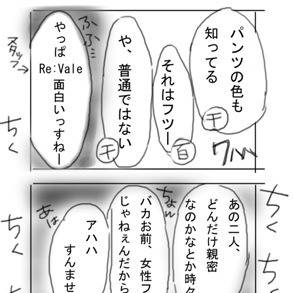 パンツの色も
知ってる
千
それはフツー
百
や、普通ではない
千
ふふ…
やっぱ
Re:Vale
面白いっすねー
スタッフ→
あの二人、
どんだけ親密
なのかなとか時々
バカお前、女性フ
じゃねぇんだから
アハハ
すんませ
あは